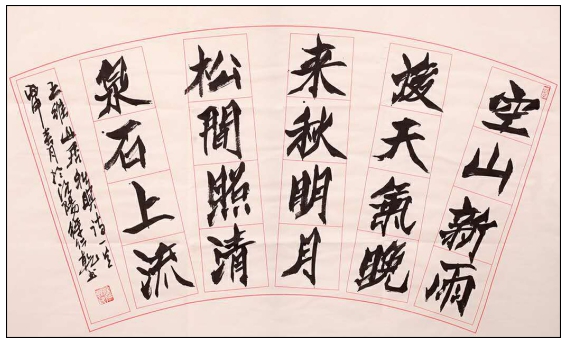 空山新雨
後天氣晚
来秋明月
松間照清
泉石上流
王維山居秋暝诗一首
月於洛陽